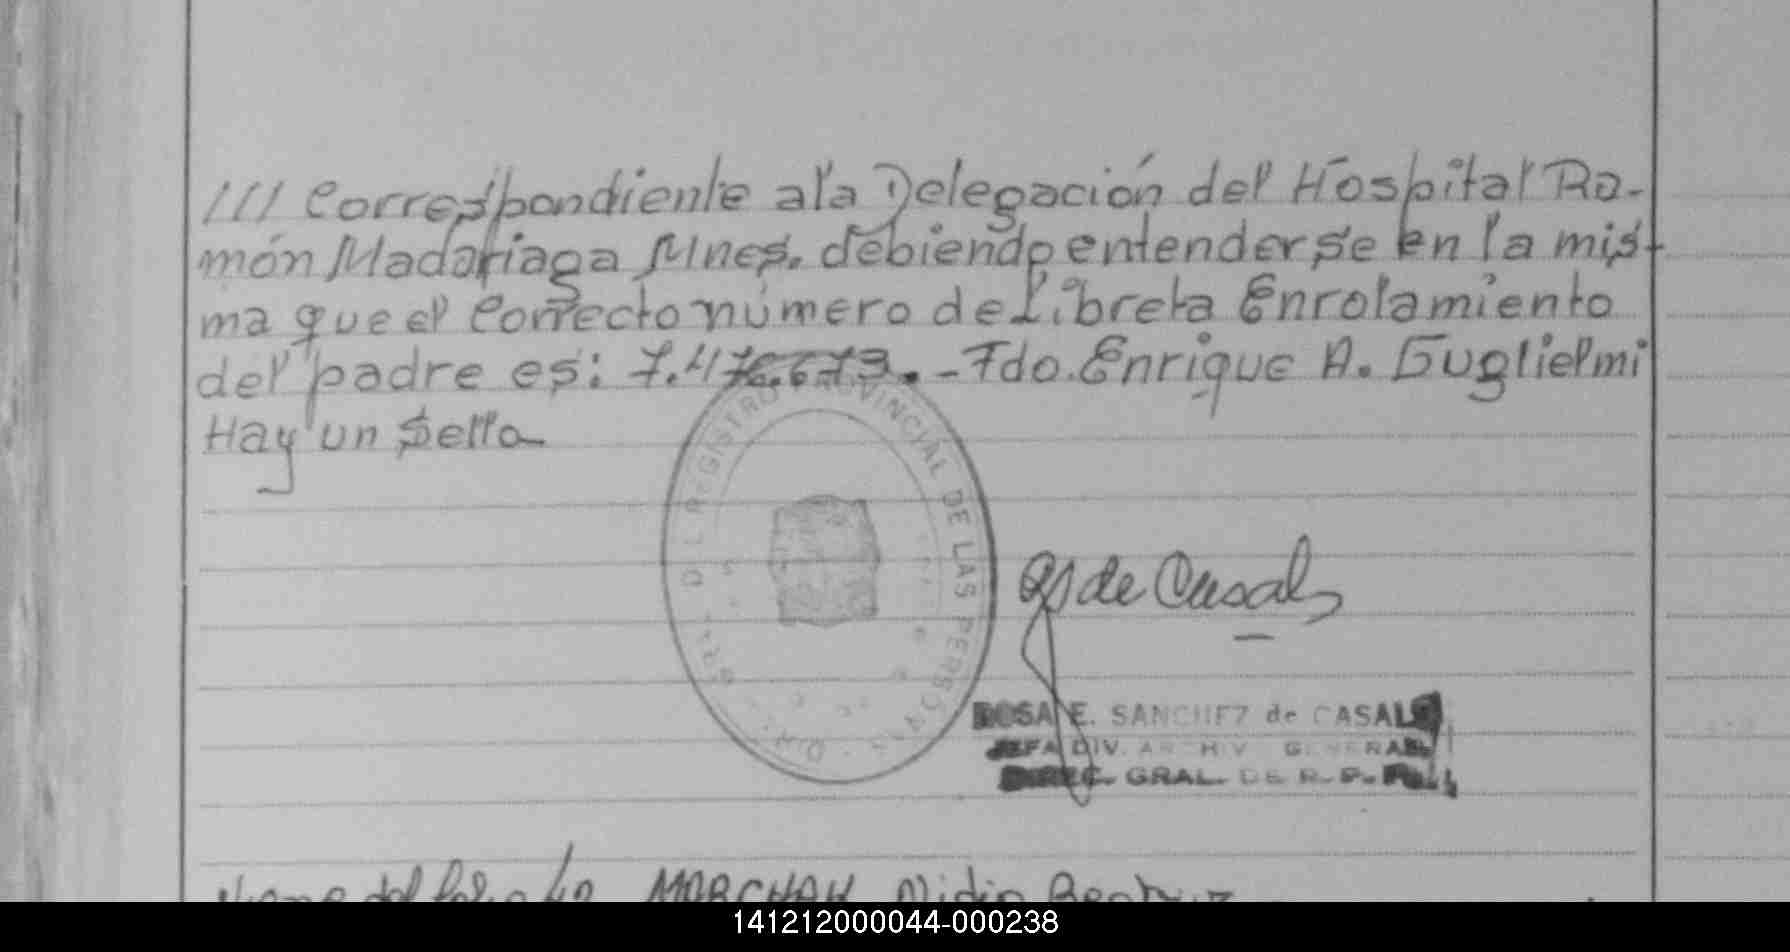 /// Correspondiente a la Delegación del Hospital Ra-
món Madariaga Mnes. debiendo entenderse en la mis-
ma que el correcto número de Libreta Enrolamiento
del padre es: 7.476.673. - Fdo. Enrique A. Guglielmi
Hay un Sello
REGISTRO PROVINCIAL DE LAS PERSONAS
de Casals
ROSA E. SANCHEZ de CASALS
JEFA DIV. ARCHIV GENERAL
DIREC. GRAL. DE R. P. P.
MARCHAK Nidia Beatriz
141212000044-000238